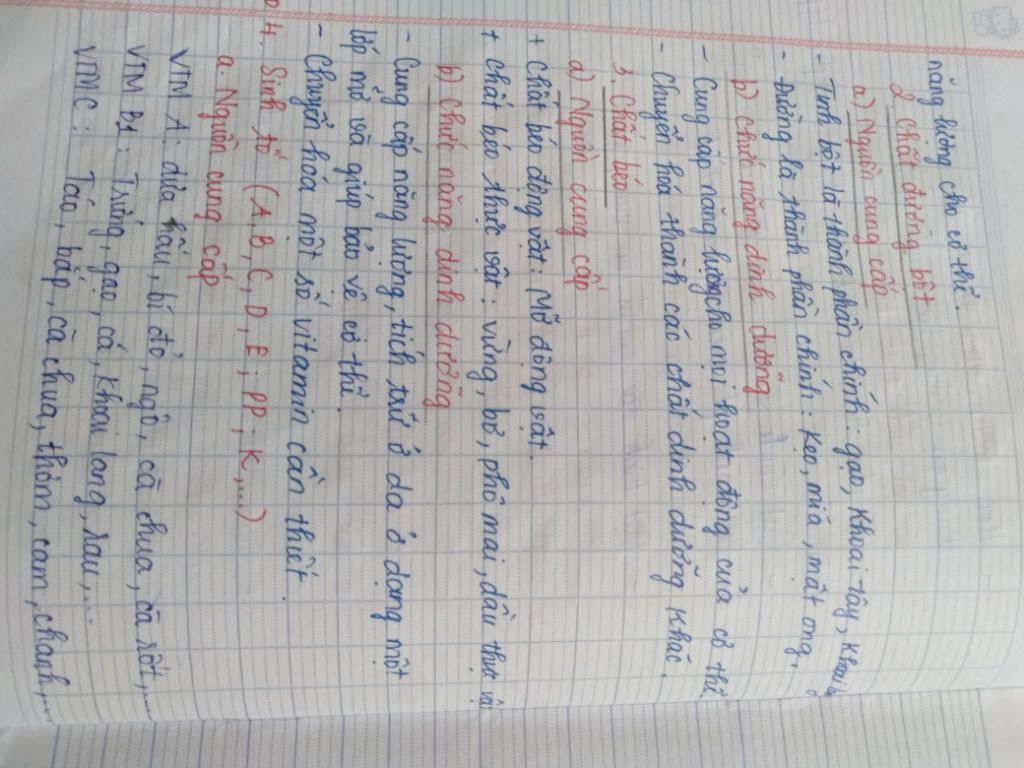 năng lượng cho cơ thể.
2. Chất đường bột
a) Nguồn cung cấp
- Tinh bột là thành phần chính: gạo, khoai tây, khoai
- Đường là thành phần chính: kẹo, mía, mật ong,
b) chức năng dinh dưỡng
- Cung cấp năng lượng cho mọi hoạt động của cơ thể
- Chuyển hóa thành các chất dinh dưỡng khác.
3. Chất béo
a) Nguồn cung cấp
+ Chất béo động vật: Mỡ động vật.
+ Chất béo thực vật: vừng, bơ, phô mai, dầu thực vật
b) Chức năng dinh dưỡng
- Cung cấp năng lượng, tích trữ ở da ở dạng một
lớp mỡ và giúp bảo vệ cơ thể.
- Chuyển hoá một số vitamin cần thiết.
4. Sinh tố (A, B, C, D, E, PP, K,...)
a. Nguồn cung cấp
VTM A: dưa hấu, bí đỏ, ngô, cà chua, cà rốt,...
VTM B1: Trứng, gạo, cá, khoai lang, rau,...
VTM C: Táo, bắp, cà chua, thơm, cam, chanh,...